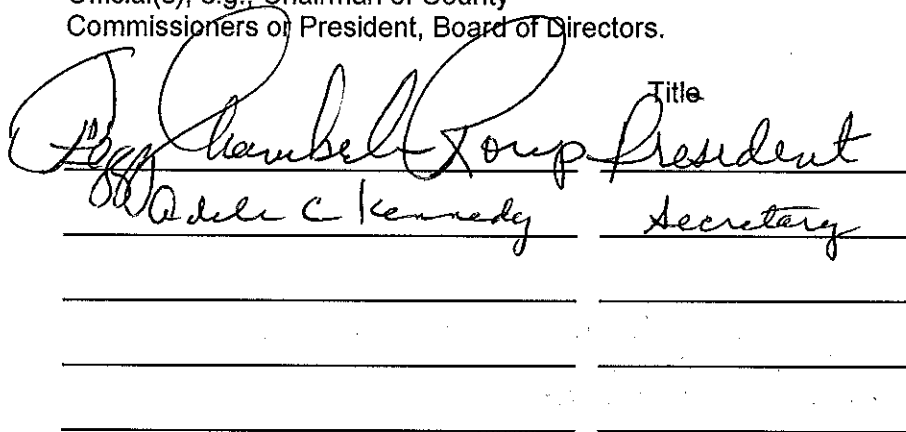 Official(s), e.g., Chairman of County
Commissioners or President, Board of Directors.
Title
Peggy Chambel President
Adele C Kennedy Secretary